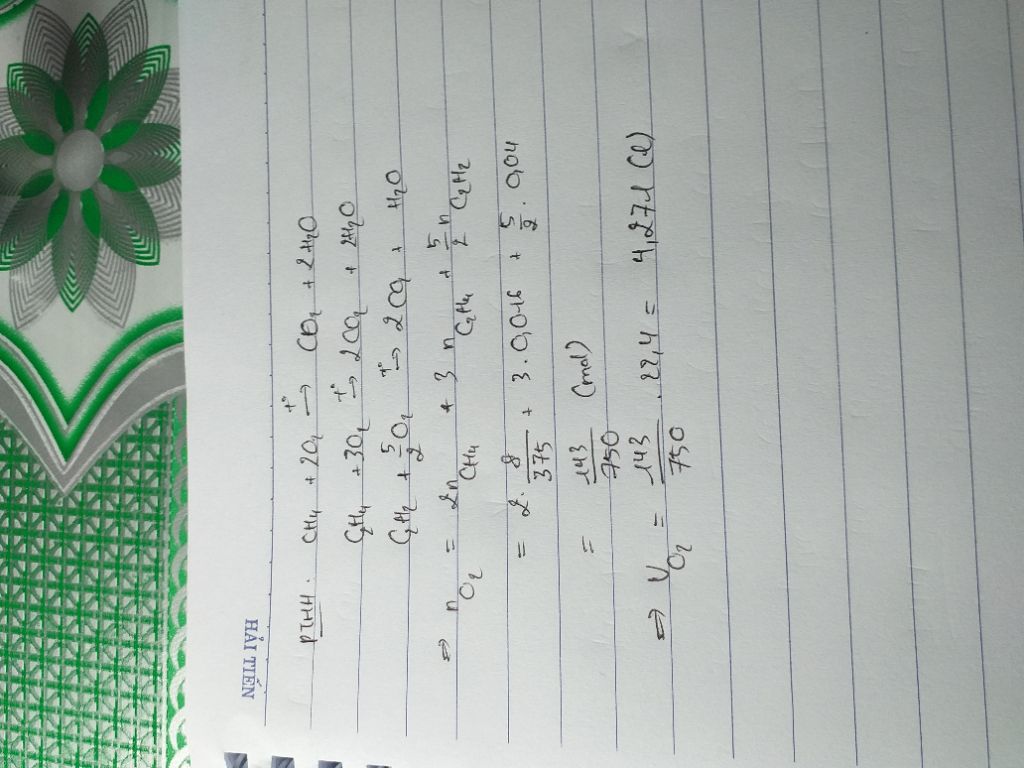 HẢI TIẾN
PTHH: CH₄ + 2O₂ t°→ CO₂ + 2H₂O
C₂H₄ + 3O₂ t°→ 2CO₂ + 2H₂O
C₂H₂ + 5/2 O₂ t°→ 2CO₂ + H₂O
⇒ n O₂ = 2n CH₄ + 3 n C₂H₄ + 5/2 n C₂H₂
= 2. 8/375 + 3. 0,016 + 5/2 . 0,04
= 143/750 (mol)
⇒ V O₂ = 143/750 . 22,4 = 4,271 (l)